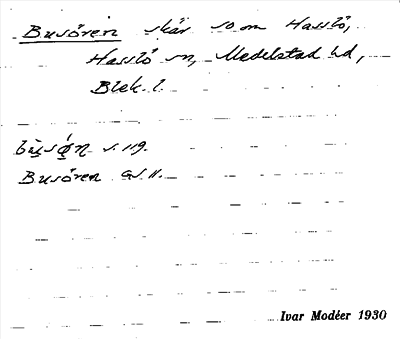 Busören skär so om Hasslö,
Hasslö sn, Medelstad hd,
Blek. l.
s. 119.
Busören GS 11.
Ivar Modéer 1930